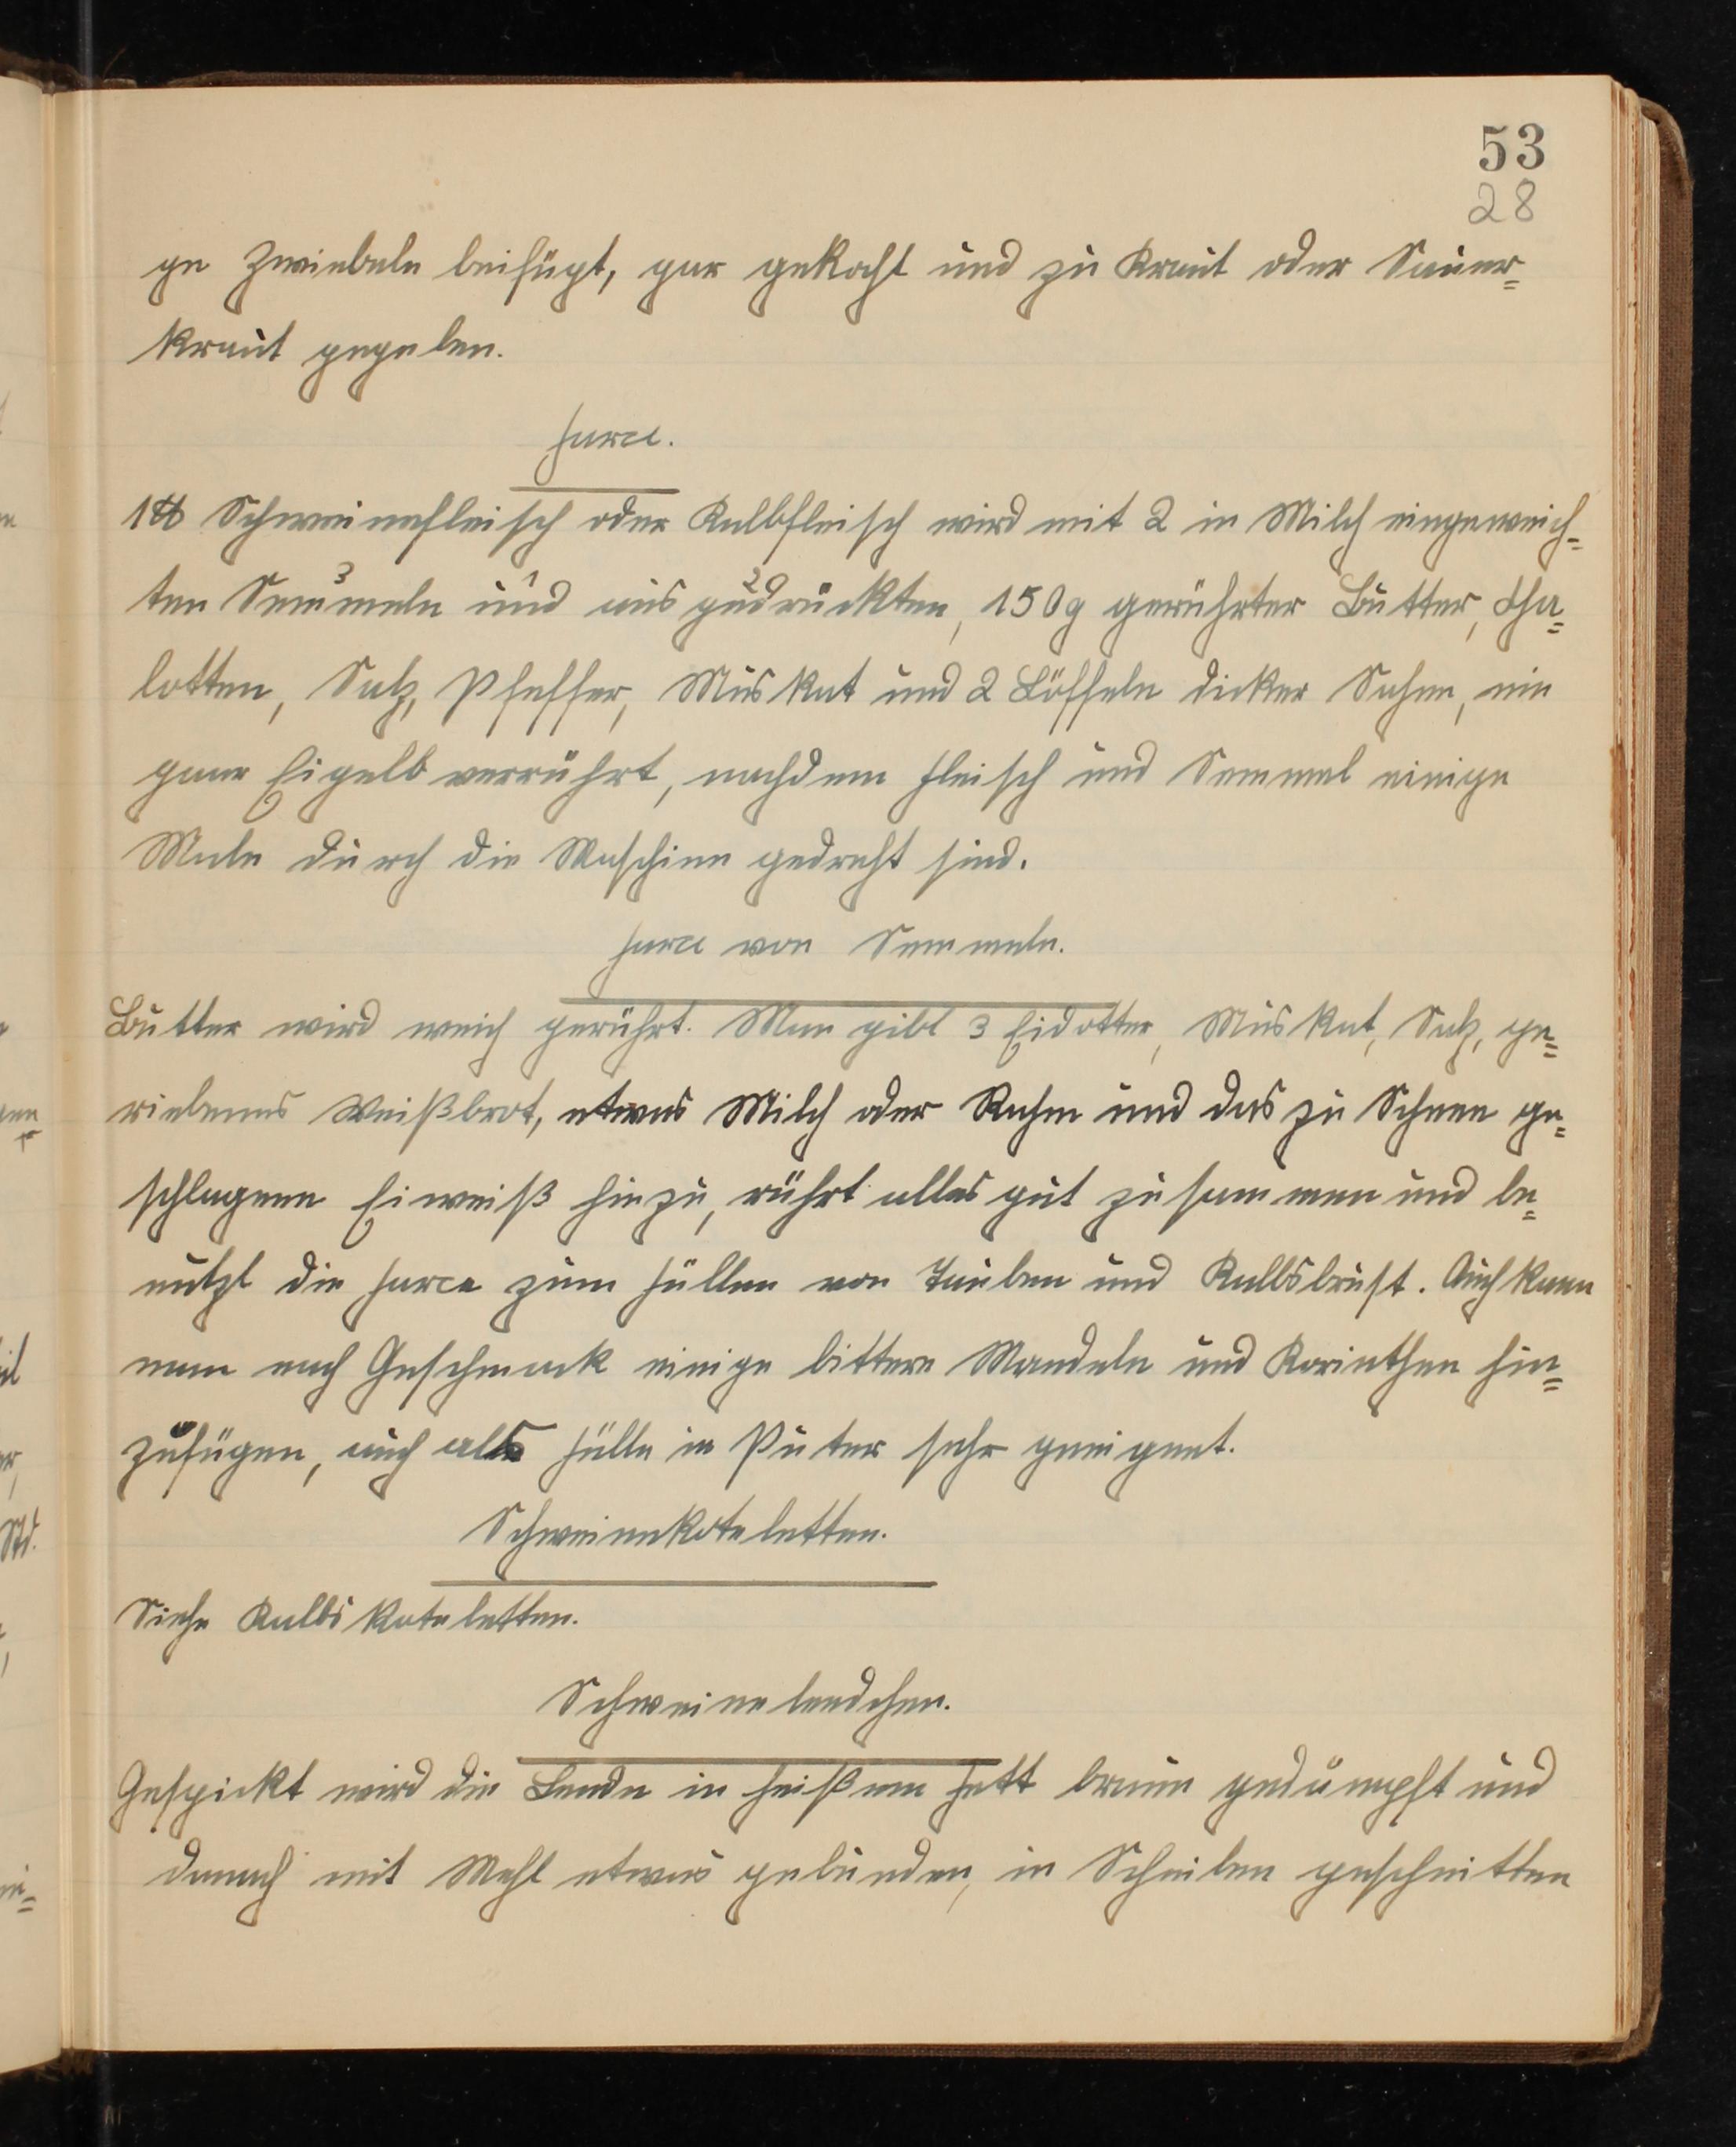 53
28
ge Zwiebeln beifügt, gar gekocht und zu Kraut oder Sauer=
kraut gegeben.
Farce.
1 ℔ Schweinefleisch oder Kalbfleisch wird mit 2 in Milch eingeweich=
ten Semmeln und aus gedrückten, 150g gerührter Butter, Cha=
3 1 2
lotten, Salz, Pfeffer, Muskat und 2 Löffeln dicker Sahne, ein
paar Eigelb verrührt, nachdem Fleisch und Semmel einige
Male durch die Maschine gedreht sind.
Farce von Semmeln.
Butter wird weich gerührt. Man gibt 3 Eidotter, Muskat, Salz, ge=
riebenes Weißbrot, etwas Milch oder Rahm und das zu Schnee ge=
schlagene Eiweiß hinzu, rührt alles gut zusammen und be=
nutzt die Farce zum Füllen von Tauben und Kalbsbrust. Auch kann
man nach Geschmack einige bittere Mandeln und Korinthen hin=
zufügen, auch als Fülle in Puter sehr geeignet.
Schweinekoteletten.
Siehe Kalbskoteletten.
Schweinelendchen.
Gespickt wird die Lende in heißem Fett braun gedämpft und
danach mit Mehl etwas gebunden, in Scheiben geschnitten